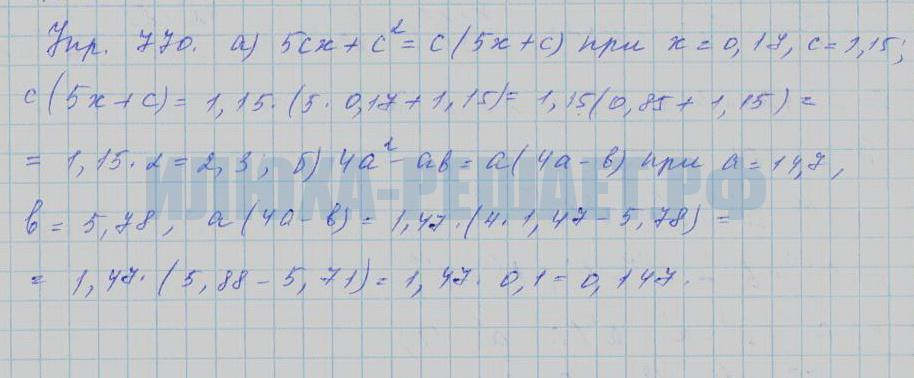 Упр. 770. а) 5cx + c² = c(5x + c) при x = 0,17, c = 1,15;
c(5x + c) = 1,15 · (5 · 0,17 + 1,15) = 1,15(0,85 + 1,15) =
= 1,15 · 2 = 2,3, б) 4a² - ab = a(4a - b) при a = 14,7,
ИЛЮХА-РЕШАЕТ.РФ
b = 5,78, a(4a - b) = 1,47 · (4 · 1,47 - 5,78) =
= 1,47 · (5,88 - 5,71) = 1,47 · 0,1 = 0,147.